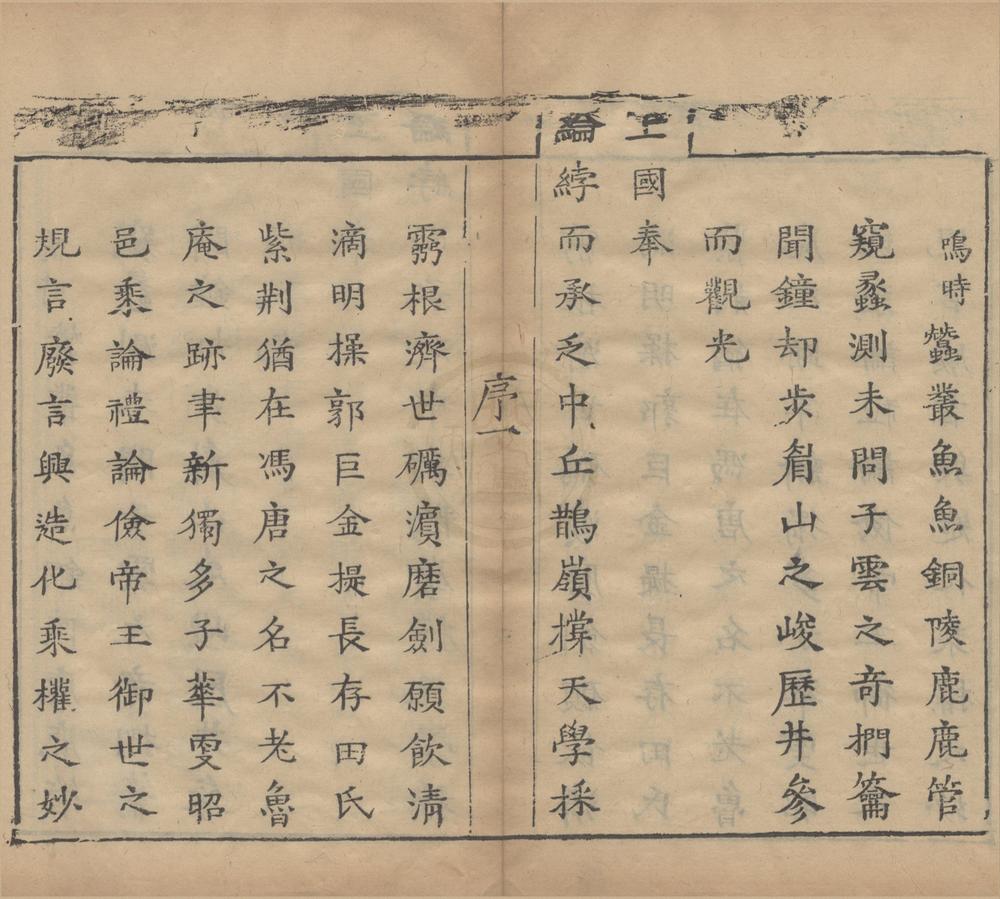 鳴時蠶叢魚魚銅陵鹿鹿管
窺蠡測未問子雲之奇捫籥
聞鐘却步眉山之峻歷井參
而觀光
上國奉
綸綍而承乏中丘鵲嶺撐天學採
序一
靈根濟世礪濱磨劍願飲清
滴明揲郭巨金提長存田氏
紫荆猶在馮唐之名不老魯
庵之跡聿新獨多子華雯昭
邑乘論禮論儉帝王御世之
規言廢言興造化乘權之妙